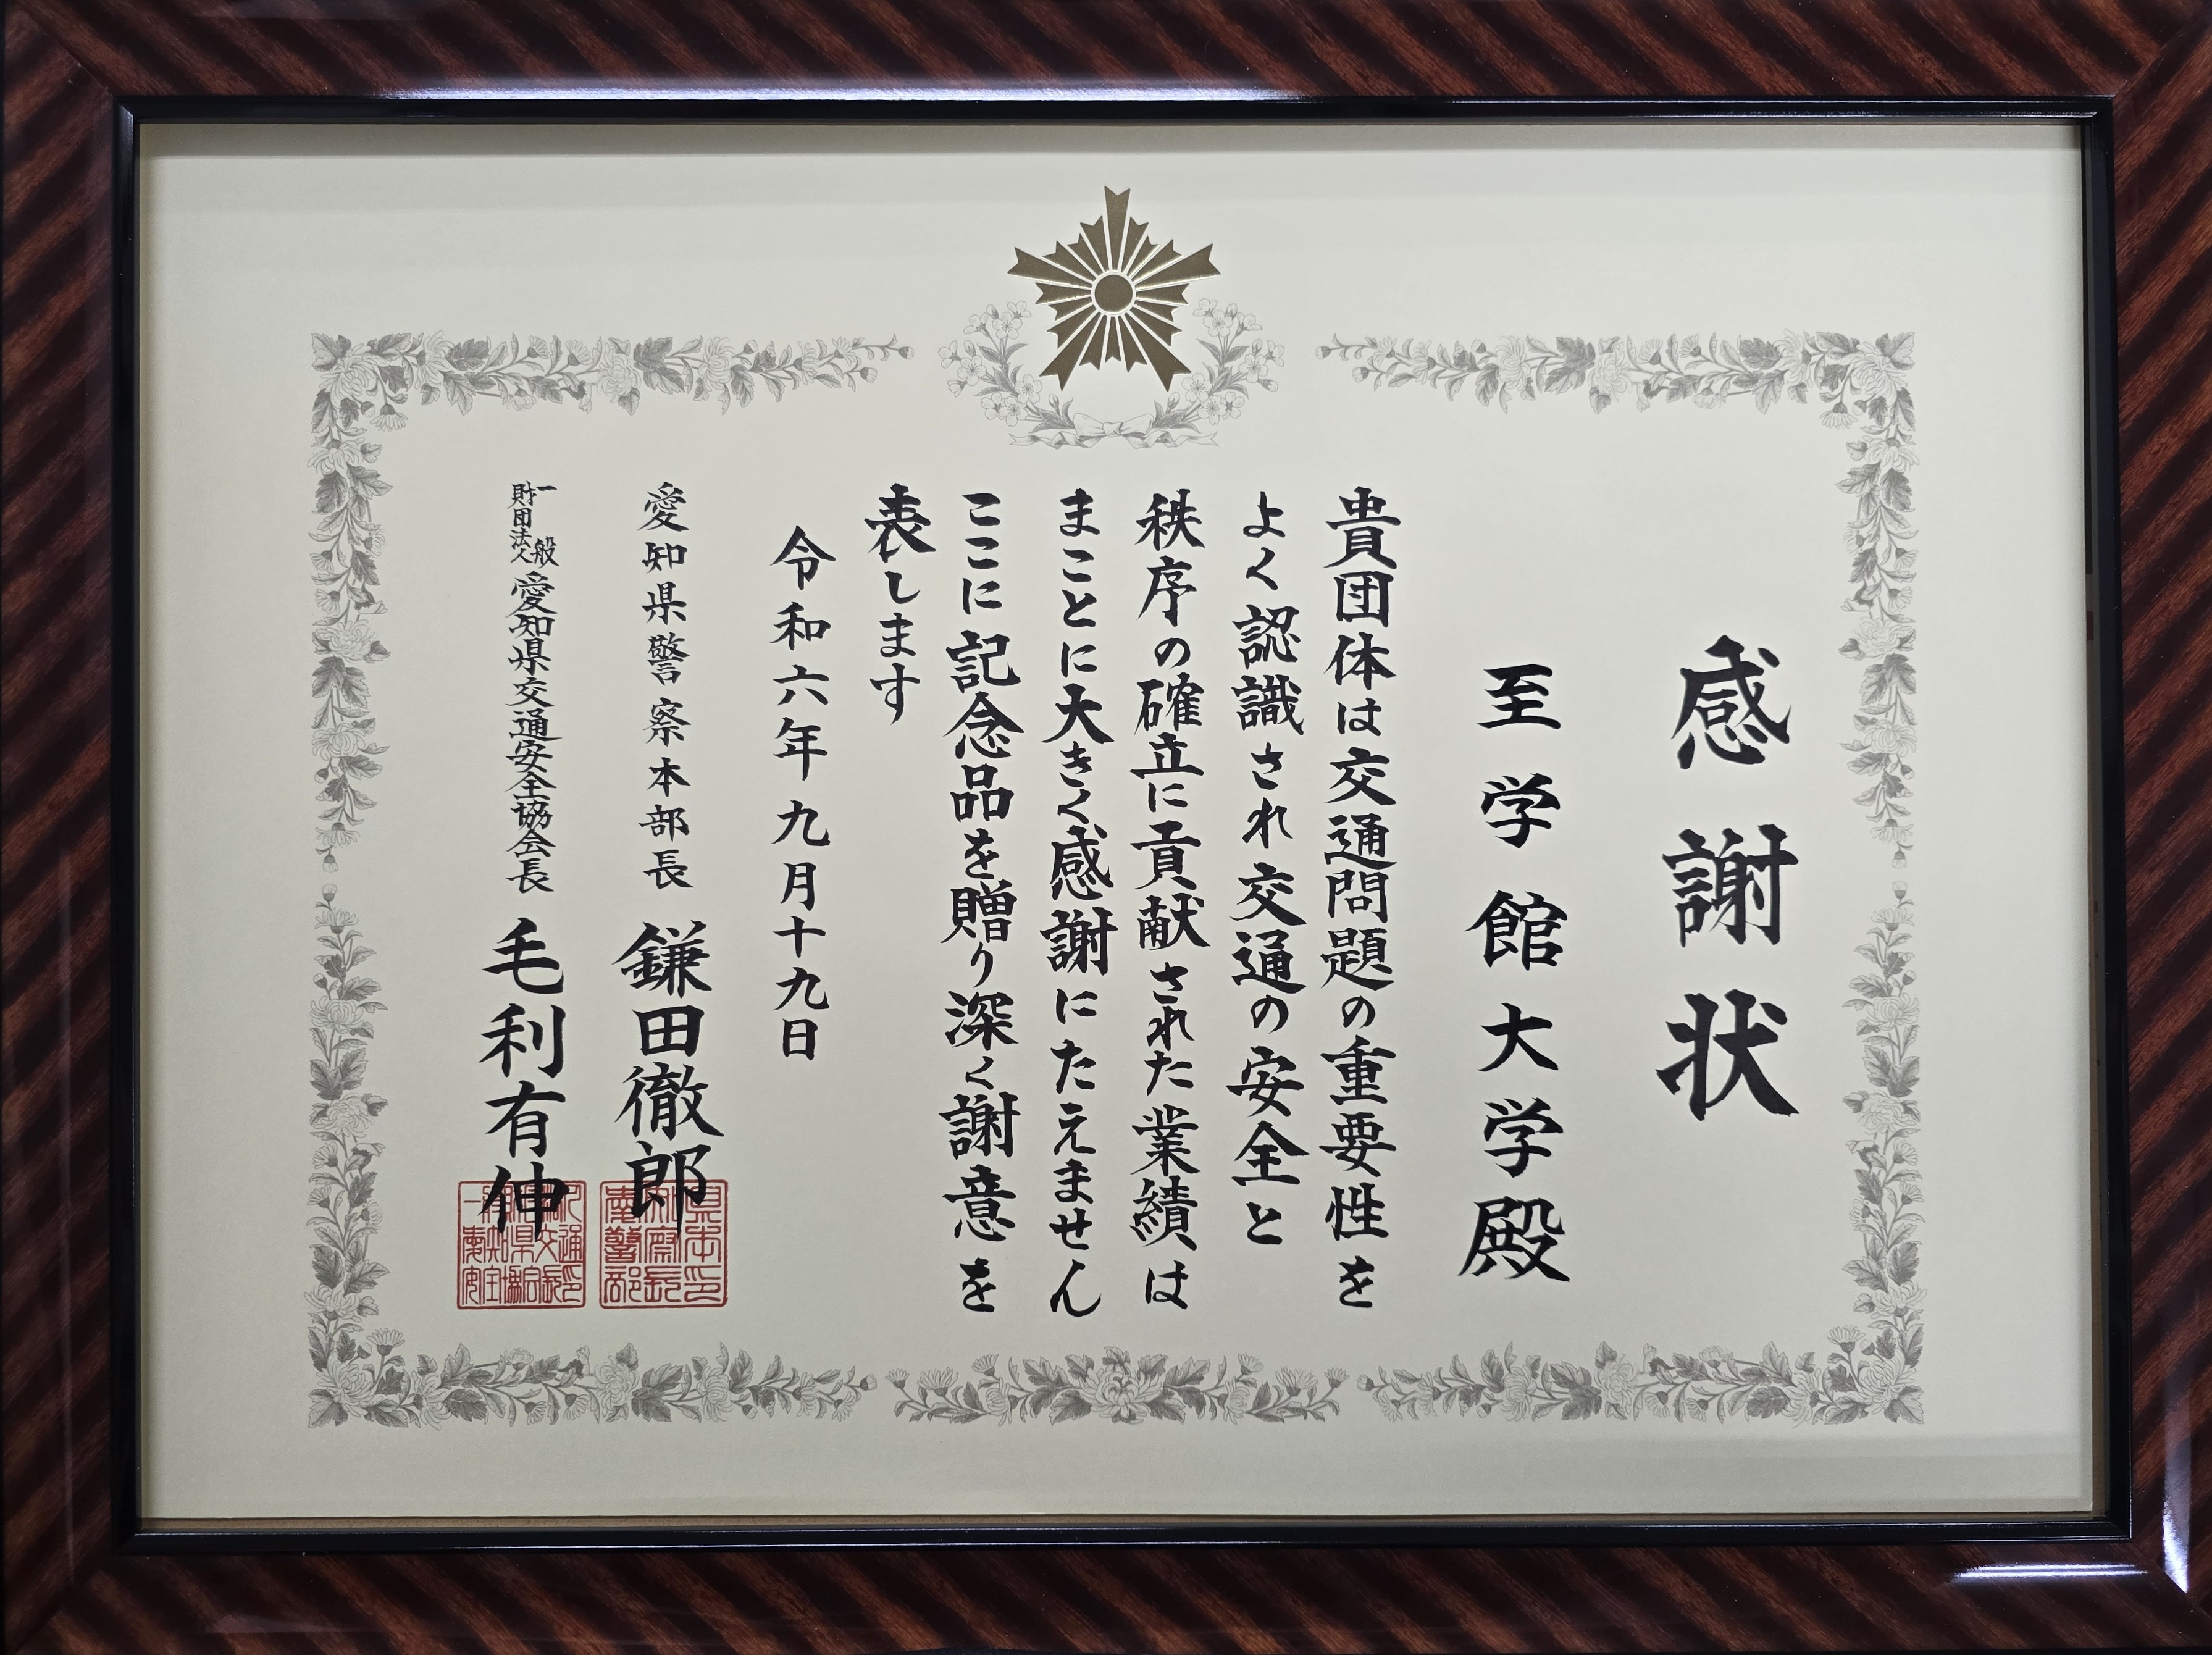 感謝状
至学館大学殿
貴団体は交通問題の重要性を
よく認識され交通の安全と
秩序の確立に貢献された業績は
まことに大きく感謝にたえません
ここに記念品を贈り深く謝意を
表します
令和六年九月十九日
愛知県警察本部長 鎌田徹郎
一般財団法人愛知県交通安全協会長 毛利有伸